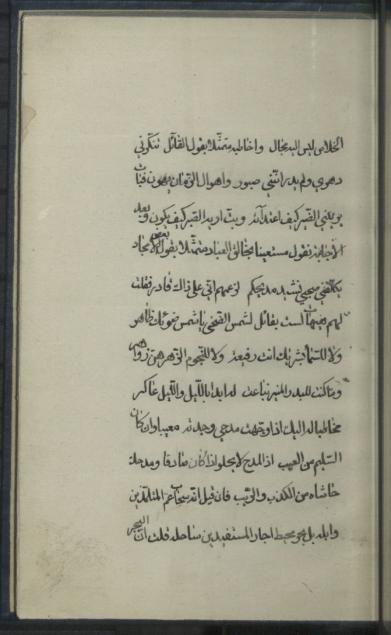 الخلاص ليس اليه مجال واخاطبه متمثلا بقول القائل تنكر لي
دهري ولم يدر انني صبور واهوال الزمان تهون فبات
يريني القهر كيف اعتداءه وبت اريه القهر كيف يكون وبعد
الاجابة نقول مستعينا بخالق العباد متمثلا بقول بعض الامجاد
يكلفني صحبي نشيد مديحكم لزعمهم اني على ذاك قادر فقلت
لهم هيهات لست بقائل لشمس الضحى يا شمس ضوئك ظاهر
ولا للسماء بشراك انت رفيعة ولا للنجوم الزهر هن زواهر
وما كنت للبدر المنير بناعت له ابدا بالليل والليل عاكر
مخاطبا له اليك اذا وجهت مدحي وجدته معيبا وان كان
السليم من العيب اذ المدح لا يحلو اذا كان صادقا ومدحك
حاشاه من الكذب والريب فان قيل انه سحاب عم المتلذين
وابله بل بحر محيط اجار المستفيدين ساحله قلت ان البحر